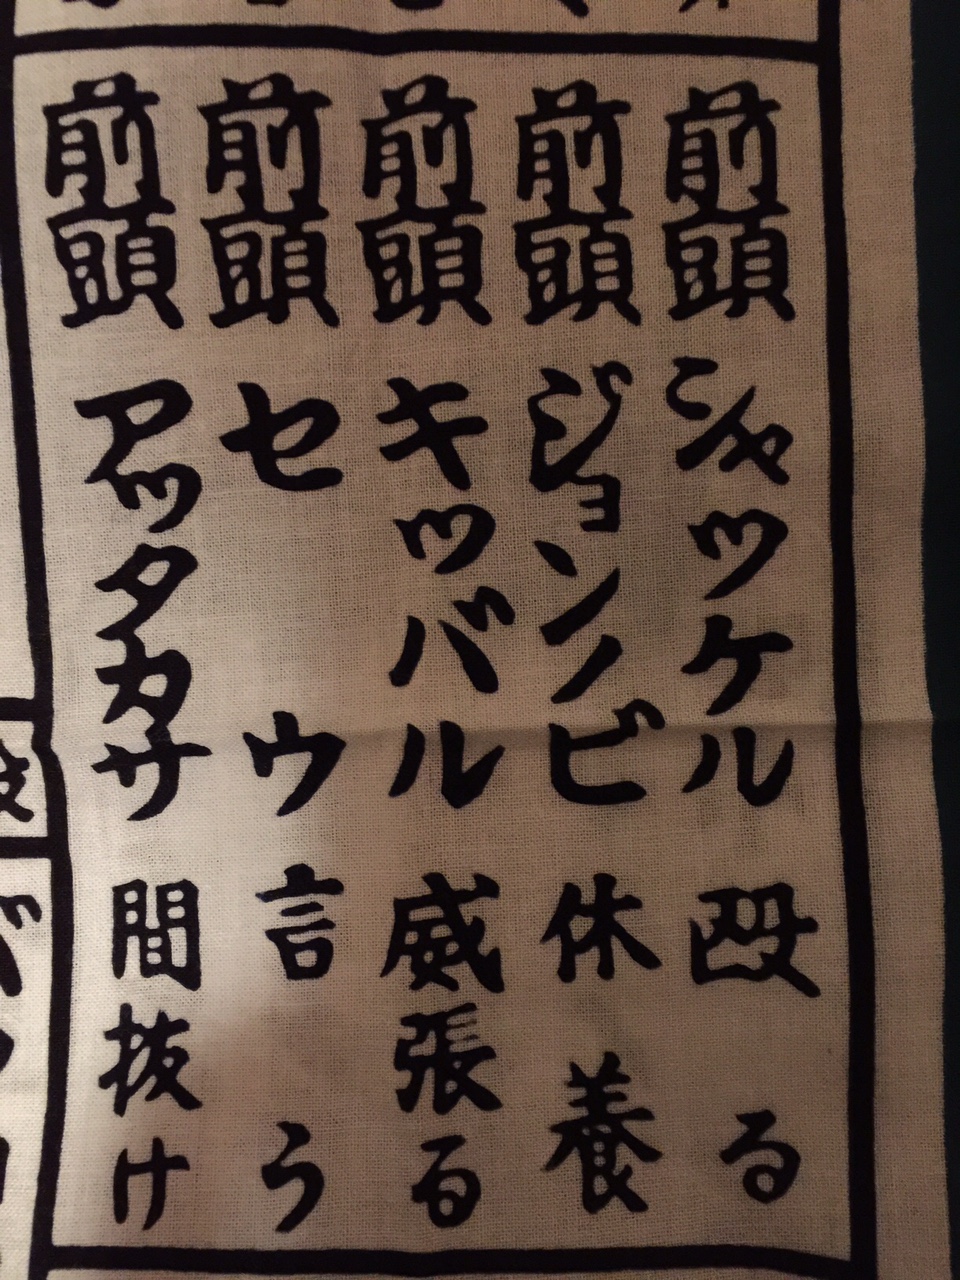 前頭 シャツケル 殴る
前頭 ジョンノビ 休養
前頭 キツバル 威張る
前頭 セウ 言う
前頭 アツタカサ 間抜け